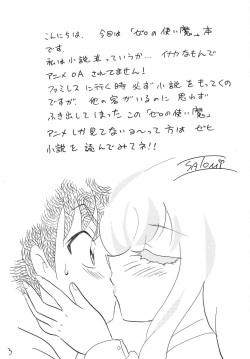 こんにちは、今回は「ゼロの使い魔」本
です。
私は小説並っていうか… イナカなもんで
アニメ OA されてません！
ファミレスに行く時必ず小説をもってくの
ですが、他の客がいるのに思わず
ふき出してしまったこの「ゼロの使い魔」
アニメしか見てないヨ〜って方はゼヒ
小説を読んでみてネ!!
SATOMI
3